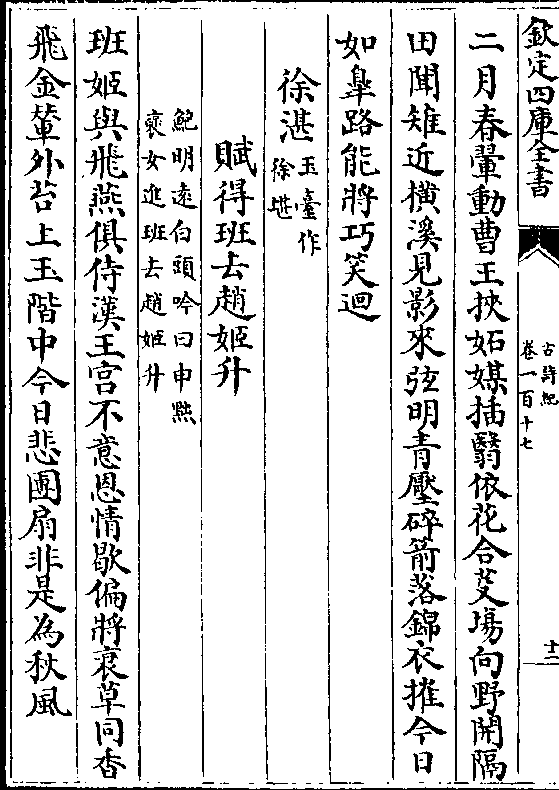 欽定四庫全書
古詩紀
卷一百十七
十二
二月春翬動曹王挾妬媒插翳依花合芟場向野開隔
田聞雉近橫溪見影來弦明青壓碎箭落錦衣摧今日
如臯路能將巧笑迴
徐湛
玉臺作
徐堪
賦得班去趙姬升
鮑明遠白頭吟曰申黜
褒女進班去趙姬升
班姬與飛燕俱侍漢王宮不意恩情歇偏將衰草同香
飛金輦外苔上玉階中今日悲團扇非是為秋風